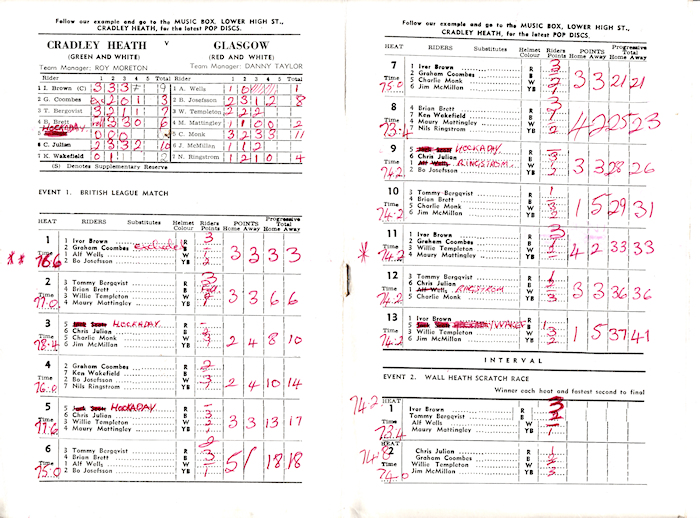 Follow our example and go to the MUSIC BOX, LOWER HIGH ST.,
CRADLEY HEATH, for the latest POP DISCS.
CRADLEY HEATH v GLASGOW
(GREEN AND WHITE) (RED AND WHITE)
Team Manager: ROY MORETON Team Manager: DANNY TAYLOR
Rider 1 2 3 4 5 Total Rider 1 2 3 4 5 Total
1 I. Brown (C) 3 3 3 9 1 A. Wells 1 0 1
2 G. Coombes 2 0 1 3 2 B. Josefsson 2 3 1 2 8
3 T. Bergqvist 3 2 1 1 7 3 W. Templeton 2 2 2
4 B. Brett 3 0 6 4 M. Mattingley 1 1 0 0 2
5 HOCKADAY 0 0 0 5 C. Monk 3 2 3 3 11
6 C. Julian 2 3 3 2 10 6 J. McMillan 1 1 2
7 K. Wakefield 0 1 2 7 N. Ringstrom 1 2 1 0 4
(S) Denotes Supplementary Reserve
EVENT 1. BRITISH LEAGUE MATCH
HEAT RIDERS Substitutes Helmet Colour Riders Points POINTS Home Away Progressive Total Home Away
1 1 Ivor Brown R 3
2 Graham Coombes B
1 Alf Wells W 3 3 3 3
Time 2 Bo Josefsson YB
** 76.6
2 3 Tommy Bergqvist R 3
4 Brian Brett B
3 Willie Templeton W 3 3 6 6
Time 4 Maury Mattingley YB
77.0
3 5 HOCKADAY R
6 Chris Julian B
5 Charlie Monk W 2 4 8 10
Time 6 Jim McMillan YB
78.4
4 2 Graham Coombes R 2
7 Ken Wakefield B
2 Bo Josefsson W 2 4 10 14
Time 7 Nils Ringstrom YB
76.0
5 5 HOCKADAY R
6 Chris Julian B
3 Willie Templeton W 3 3 13 17
Time 4 Maury Mattingley YB
77.6
6 3 Tommy Bergqvist R 2
4 Brian Brett B 3
1 Alf Wells W 5 1 18 18
Time 2 Bo Josefsson YB 1
75.0
Follow our example and go to the MUSIC BOX, LOWER HIGH ST.,
CRADLEY HEATH, for the latest POP DISCS.
HEAT RIDERS Substitutes Helmet Colour Riders Points POINTS Home Away Progressive Total Home Away
7 1 Ivor Brown R 3
2 Graham Coombes B
5 Charlie Monk W 3 3 21 21
Time 6 Jim McMillan YB
75.0
8 4 Brian Brett R 3
7 Ken Wakefield B
4 Maury Mattingley W 4 2 25 23
Time 7 Nils Ringstrom YB
73.4
9 5 HOCKADAY R
6 Chris Julian B 3
1 Alf Wells RINGSTROM W 3 3 28 26
Time 2 Bo Josefsson YB 2
74.2
10 3 Tommy Bergqvist R 1
4 Brian Brett B
5 Charlie Monk W 3 1 5 29 31
Time 6 Jim McMillan YB 2
74.2
11 1 Ivor Brown R 3
2 Graham Coombes B 1
3 Willie Templeton W 2 4 2 33 33
Time 4 Maury Mattingley YB
* 74.2
12 3 Tommy Bergqvist R 1
6 Chris Julian B 2
1 Alf Wells RINGSTROM W 3 3 36 36
Time 5 Charlie Monk YB 3
74.2
13 1 Ivor Brown R
5 HOCKADAY/WAKE B 1
3 Willie Templeton W 3 1 5 37 41
Time 2 Bo Josefsson YB 2
74.2
INTERVAL
EVENT 2. WALL HEATH SCRATCH RACE
Winner each heat and fastest second to final
74.2 HEAT
1 Ivor Brown R 3
Tommy Bergqvist B 2
Time Willie Templeton W
73.4 Maury Mattingley YB 1
HEAT
74.8 2 Chris Julian R
Graham Coombes B
Time Willie Templeton W
74.0 Jim McMillan YB